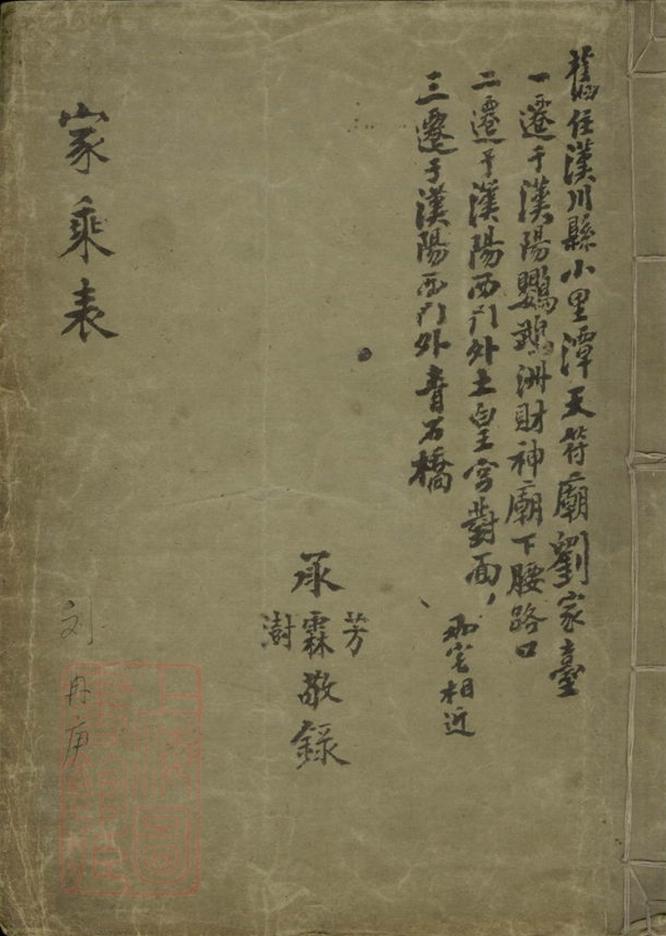 舊住漢川縣小里潭天符廟劉家臺
一遷于漢陽鸚鵡洲財神廟下腰路口
二遷于漢陽西門外土皇宮對面，
兩宅相近
三遷于漢陽西門外青石橋
芳
承霖敬錄
澍
家乘表
刘
丹庚